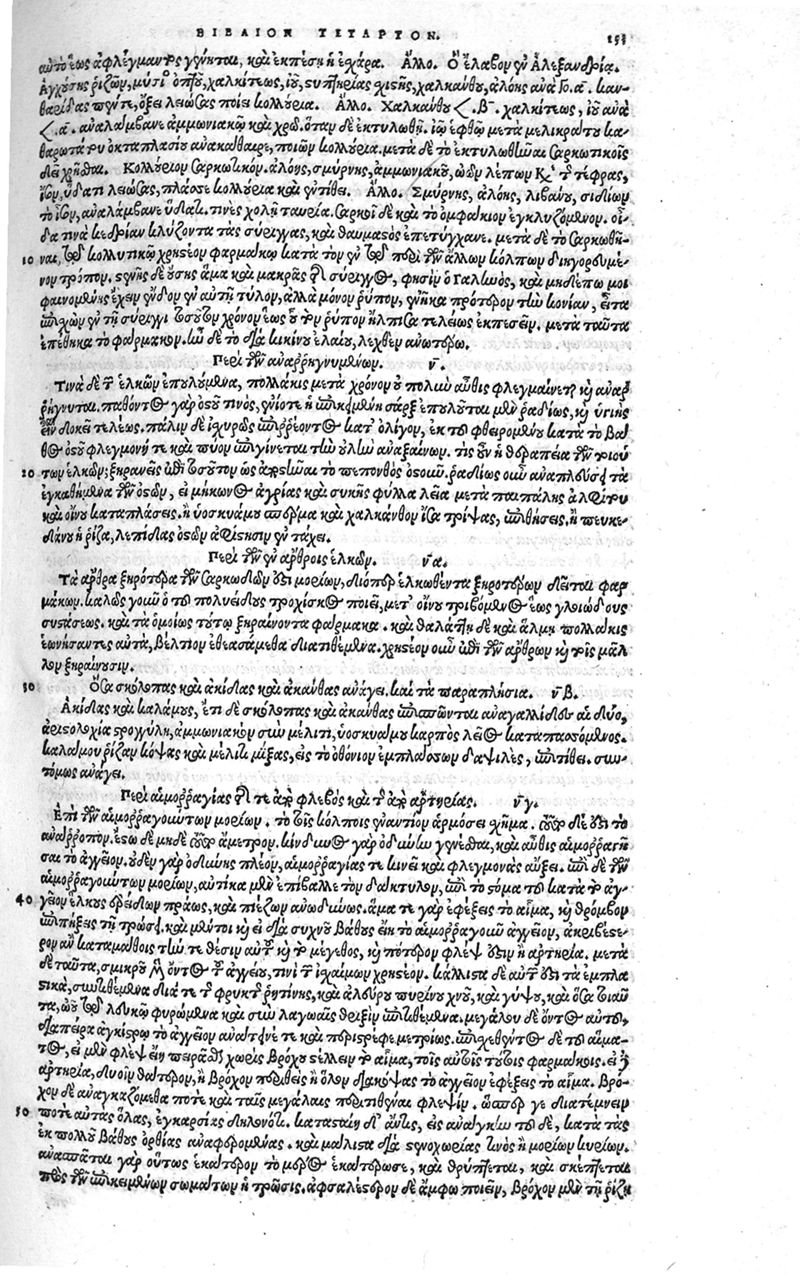 ΒΙΒΛΙΟΝ ΤΕΤΑΡΤΟΝ.
αὐτὸ ἕως ἀφλέγμαντος γένηται, καὶ ἐκπέσῃ ἡ ἐχάρα. Ἄλλο. Ὃ ἔλαβον ἐν Ἀλεξανδρίᾳ.
Ἀγχούσης ῥιζῶν, μίσυος ὀπτοῦ, χαλκίτεως, ἰοῦ, στυπτηρίας σχιστῆς, χαλκάνθου, ἀλόης ἀνὰ Γο. α. καν-
θαρίδας πέντε, ὄξει λειώσας ποίει κολλύρια. Ἄλλο. Χαλκάνθου <. β. χαλκίτεως, ἰοῦ ἀνὰ
<. α. ἀναλάμβανε ἀμμωνιακῷ καὶ χρῶ. ὅταν δὲ ἐκτυλωθῇ. ἰῷ ἑφθῷ μετὰ μελικράτου κα-
θαρωτάτου ὀκταπλασίου ἀνακάθαιρε, ποιῶν κολλύρια. μετὰ δὲ τὸ ἐκτυλωθῆναι σαρκωτικοῖς
δεῖ χρῆσθαι. Κολλύριον σαρκωτικόν. ἀλόης, σμύρνης, ἀμμωνιακοῦ, ὠῶν λέπων κεκαυμένων τέφρας,
ἴσον, ὕδατι λειώσας, πλάσσε κολλύρια καὶ ἐντίθει. Ἄλλο. Σμύρνης, ἀλόης, λιβάνου, σιδίων
τὸ ἴσον, ἀναλάμβανε ὕδατι. τινὲς χολῇ ταυρείᾳ. σαρκοῖ δὲ καὶ τὸ ὀμφάκιον ἐγκλυζόμενον. οἶ-
δα τινὰ κεδρίαν κλύζοντα τὰς σύριγγας, καὶ θαυμαστῶς ἐπετύγχανε. μετὰ δὲ τὸ σαρκωθῆ-
10 ναι, τῷ κολλητικῷ χρηστέον φαρμάκῳ κατὰ τὸν ἐν τῷ περὶ τῶν ἄλλων κόλπων διηγορευμέ-
νον τρόπον. στενῆς δὲ οὔσης ἅμα καὶ μακρᾶς τῆς σύριγγος, φησὶν ὁ Γαληνὸς, καὶ μηδέπω μοι
φαινομένης ἔχειν ἔνδον ἐν αὐτῇ τύλον, ἀλλὰ μόνον ῥύπον, ἐνῆκα πρότερον τὴν κονίαν, εἶτα
ἐπισχὼν ἐν τῇ σύριγγι τοσοῦτον χρόνον ἕως οὗ τὸν ῥύπον ἤλπιζα τελείως ἐκπεσεῖν. μετὰ ταῦτα
ἐπέθηκα τὸ φάρμακον. ἦν δὲ τὸ διὰ κικίνου ἐλαίου, λεχθὲν ἀνωτέρω.
Περὶ τῶν ἀναρρηγνυμένων. ν.
Τινὰ δὲ τῶν ἑλκῶν ἐπουλούμενα, πολλάκις μετὰ χρόνον οὐ πολὺν αὖθις φλεγμαίνεται καὶ ἀναρ-
ρήγνυται. παθόντος γὰρ ὀστοῦ τινὸς, ἐνίοτε ἡ ἐπικειμένη σὰρξ ἐπουλοῦται μὲν ῥᾳδίως, καὶ ὑγιὴς
εἶναι δοκεῖ τελέως. πάλιν δὲ ἰχῶρος ἐπιρρέοντος κατ' ὀλίγον, ἐκ τοῦ φθειρομένου κατὰ τὸ βά-
θος ὀστοῦ φλεγμονή τε καὶ πύον ἐπιγίνεται τὴν οὐλὴν ἀναξαίνων. τίς οὖν ἡ θεραπεία τῶν τοιού-
20 των ἑλκῶν; ξηρανεῖς ἐπὶ τοσοῦτον ὡς ἀποστῆναι τὸ πεπονθὸς ὀστοῦν. ῥᾳδίως οὖν ἀναπλεύσει τὰ
ἐγκαθήμενα τῶν ὀστῶν, εἰ μήκωνος ἀγρίας καὶ συκῆς φύλλα λεῖα μετὰ παιπάλης ἀλφίτου
καὶ οἴνου καταπλάσεις. ἢ ὑοσκυάμου σπέρμα καὶ χάλκανθον ἴσα τρίψας, ἐπιθήσεις, ἢ πευκε-
δάνου ἡ ῥίζα, λεπίδας ὀστῶν ἀφίστησιν ἐν τάχει.
Περὶ τῶν ἐν ἄρθροις ἑλκῶν. να.
Τὰ ἄρθρα ξηρότερα τῶν σαρκωδῶν ἐστὶ μορίων, διόπερ ἑλκωθέντα ξηροτέρων δεῖται φαρ-
μάκων. καλῶς γοῦν ὁ τοῦ πολυείδους τροχίσκος ποιεῖ, μετ' οἴνου τριβόμενος ἕως γλοιώδους
συστάσεως. καὶ τὰ ὁμοίως τούτῳ ξηραίνοντα φάρμακα. καὶ θαλάττῃ δὲ καὶ ἅλμῃ πολλάκις
ἰωνήσαντες αὐτὰ, βέλτιον ἐθεασάμεθα διατιθέμενα. χρηστέον οὖν ἐπὶ τῶν ἄρθρων καὶ τοῖς μᾶλ-
λον ξηραίνουσιν.
30 Ὅσα σκόλοπας καὶ ἀκίδας καὶ ἀκάνθας ἀνάγει. καὶ τὰ παραπλήσια. νβ.
Ἀκίδας καὶ καλάμους, ἔτι δὲ σκόλοπας καὶ ἀκάνθας ἐπισπῶνται ἀναγαλλίδες αἱ δύο,
ἀριστολοχία στρογγύλη, ἀμμωνιακὸν σὺν μέλιτι, ὑοσκυάμου καρπὸς λεῖος καταπασσόμενος.
καλάμου ῥίζαν κόψας καὶ μέλιτι μίξας, εἰς τὸ ὀθόνιον ἐμπλάσσων δαψιλὲς, ἐπιτίθει. συν-
τόμως ἀνάγει.
Περὶ αἱμορραγίας τῆς τε ἀπὸ φλεβὸς καὶ τῆς ἀπὸ ἀρτηρίας. νγ.
Ἐπὶ τῶν αἱμορραγούντων μορίων. τὸ τοῖς κόλποις ἐναντίον ἁρμόσει σχῆμα. τοῦτο δέ ἐστι τὸ
ἀνάρροπον. ἔστω δὲ μηδὲ τοῦτο ἄμετρον. κίνδυνος γὰρ ὀδύνην γενέσθαι, καὶ αὖθις αἱμορραγῆ-
σαι τὸ ἀγγεῖον. οὐδὲν γὰρ ὀδύνης πλέον, αἱμορραγίας τε κινεῖ καὶ φλεγμονὰς αὔξει. ἐπὶ δὲ τῶν
αἱμορραγούντων μορίων, αὐτίκα μὲν ἐπίβαλλε τὸν δάκτυλον, ἐπὶ τὸ στόμα τοῦ κατὰ τὸ ἀγ-
40 γεῖον ἕλκους ἐρείδων πράως, καὶ πιέζων ἀνωδύνως. ἅμα τε γὰρ ἐφέξεις τὸ αἷμα, καὶ θρόμβον
ἐπιπήξεις τῇ τρώσει. καὶ μέντοι καὶ εἰ διὰ συχνοῦ βάθους εἴη τὸ αἱμορραγοῦν ἀγγεῖον, ἀκριβέστε-
ρον ἂν καταμάθοις τήν τε θέσιν αὐτοῦ καὶ τὸ μέγεθος, καὶ πότερον φλὲψ ἐστὶν ἢ ἀρτηρία. μετὰ
δὲ ταῦτα, σμικροῦ μὲν ὄντος τοῦ ἀγγείου, τινὶ τῶν ἰσχαίμων χρηστέον. κάλλιστα δὲ αὐτῶν ἐστὶ τὰ ἐμπλα-
στικὰ, συντιθέμενα διά τε τῆς φρυκτῆς ῥητίνης, καὶ ἀλεύρου πυρίνου χνοῦ, καὶ γύψου, καὶ ὅσα τοιαῦ-
τα, ὠοῦ τῷ λευκῷ φυρώμενα καὶ σὺν λαγωαῖς θριξὶν ἐπιτιθέμενα. μεγάλου δὲ ὄντος αὐτοῦ,
διαπείρας ἀγκίστρῳ τὸ ἀγγεῖον ἀνάτεινέ τε καὶ περίστρεφε μετρίως. ἐπισχεθέντος δὲ τοῦ αἵμα-
τος, εἰ μὲν φλὲψ εἴη πειρᾶσθαι χωρὶς βρόχου στέλλειν τὸ αἷμα, τοῖς αὐτοῖς τούτοις φαρμάκοις. εἰ δὲ
ἀρτηρία, δυοῖν θάτερον, ἢ βρόχον περιθεὶς ἢ ὅλον διακόψας τὸ ἀγγεῖον ἐφέξεις τὸ αἷμα. βρό-
χον δὲ ἀναγκαζόμεθα ποτὲ καὶ ταῖς μεγάλαις περιτιθέναι φλεψίν. ὥσπερ γε διατέμνειν
50 ποτὲ αὐτὰς ὅλας, ἐγκαρσίας δηλονότι. κατασταίη δ' ἄν τις, εἰς ἀνάγκην τοῦδε, κατὰ τὰς
ἐκ πολλοῦ βάθους ὀρθίας ἀναφερομένας. καὶ μάλιστα διὰ στενοχωρίας τινὸς ἢ μορίων κυρίων.
ἀνασπᾶται γὰρ οὕτως ἑκάτερον τὸ μέρος ἑκατέρωσε, καὶ θρύπτεται, καὶ σκέπεται
πρὸς τῶν ἐπικειμένων σωμάτων ἡ τρῶσις. ἀσφαλέστερον δὲ ἄμφω ποιεῖν, βρόχον μὲν τῇ ῥίζῃ